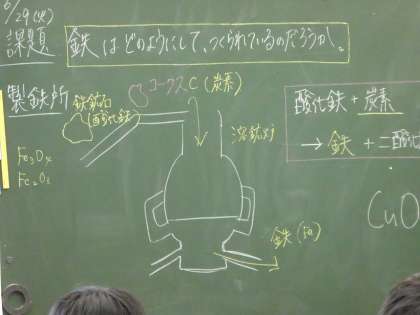 6/29(火)
課題
鉄はどのようにして、つくられているのだろうか。
製鉄所
コークスC(炭素)
鉄鉱石
酸化鉄
Fe₂O₃
溶鉱炉
鉄(Fe)
酸化鉄+炭素
→ 鉄+二酸化
CuO